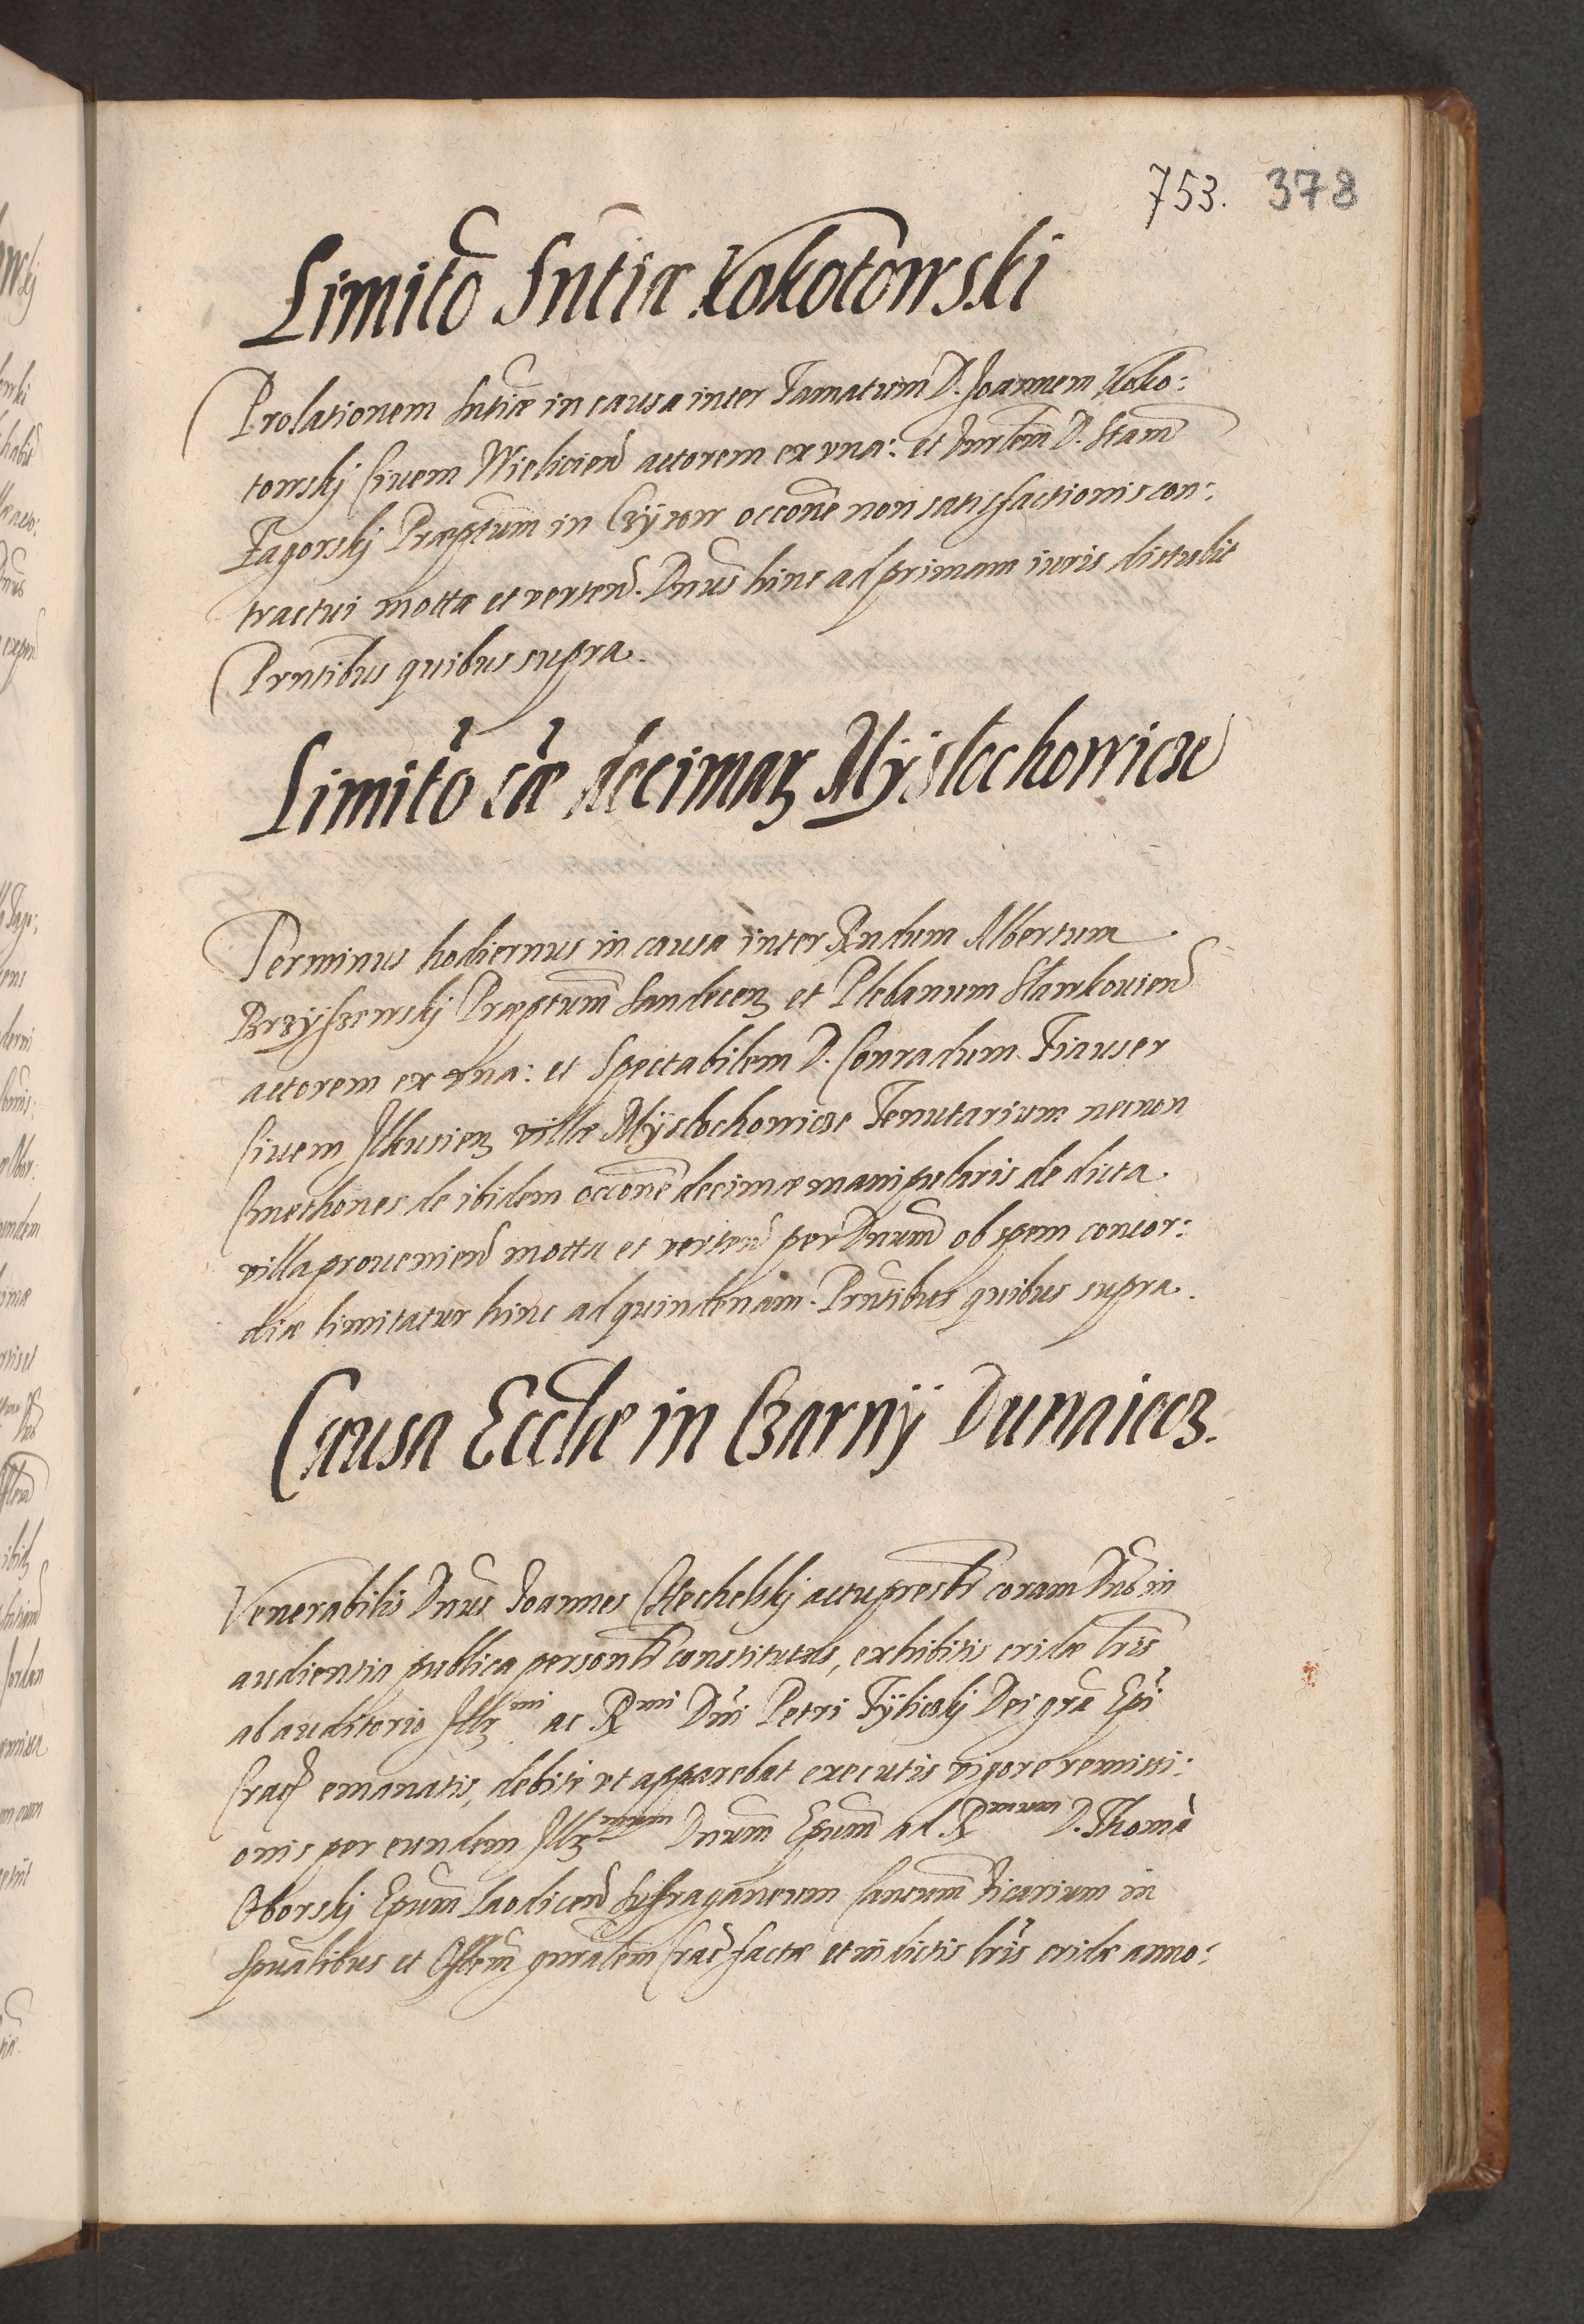 753. 378
Limitõ Sntiæ Kokotowski
Prolationem sntiæ in causa inter Famatum D. Joannem Koko:
towskj Ciuem Wieliciens̃ actorem ex vna: et Hon̄lem D. Stanis̃
Zagorskj Præptum̃ in Czyżow occone non satisfactionis con:
tractui motta et verten̄. Dnus̃ hinc ad primam iuris distulit
Prntibus quibus supra.
Limitõ cãe decimaꝝ Mÿslochowicze
Terminus hodiernus in causa inter Rndum Albertum
Brzÿszewskj Præptum̃ Sandecen̄ et Plebanum Slawkouien̄
actorem ex vna: et Spectabilem D. Conradum Frauser
Ciuem Ilkusien̄ villæ Mÿslochowicze Tenutarium necnon
Cmethones de ibidem occone decimæ manipularis de dicta
villa prouenien̄ motta et verten̄ per Dnum̃ ob spem concor:
diæ limitatur hinc ad quindenam. Prntibus quibus supra.
Causa Eccliæ in Czarnÿ Dunaiecz.
Venerabilis Dnus̃ Joannes Mechelskj actu presbr̃ coram Dño in
audientia publica personlr̃ constitutus, exhibitis cridæ lris̃
ab auditorio Illꝫmi ac Rmi Dni Petri Tÿlickj Dei grã Epi
Crac̃ emanatis, debite vt apparebat executis vigore remissi:
onis per eundem Illꝫmum Dnum̃ Epum̃ ad Rmum D. Thomã
Oborskj Epum̃ Laodicen̄ Suffraganeum Vicarium in
Spualibus et Offlem̃ gnralem Crac̃ factæ et in dictis lris̃ cridæ anno: